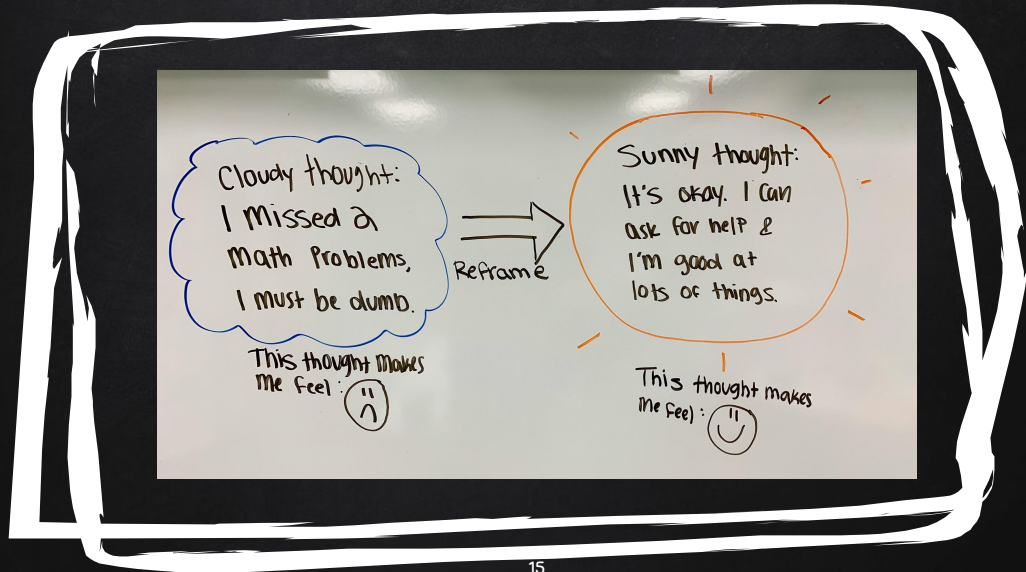 Cloudy thought:
I missed 2
math problems,
I must be dumb.
This thought makes
me feel:
Reframe
Sunny thought:
It's okay. I can
ask for help &
I'm good at
lots of things.
This thought makes
me feel:
15